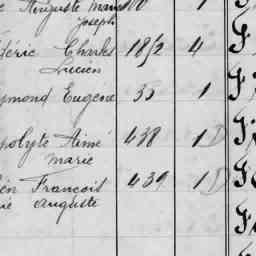 Auguste Marie 1
Joseph
déric Charles 1852 4
Lucien
ymond Eugene 35 1
polyte Aimé 438 1 D
Marie
François 439 1 D
ie Auguste